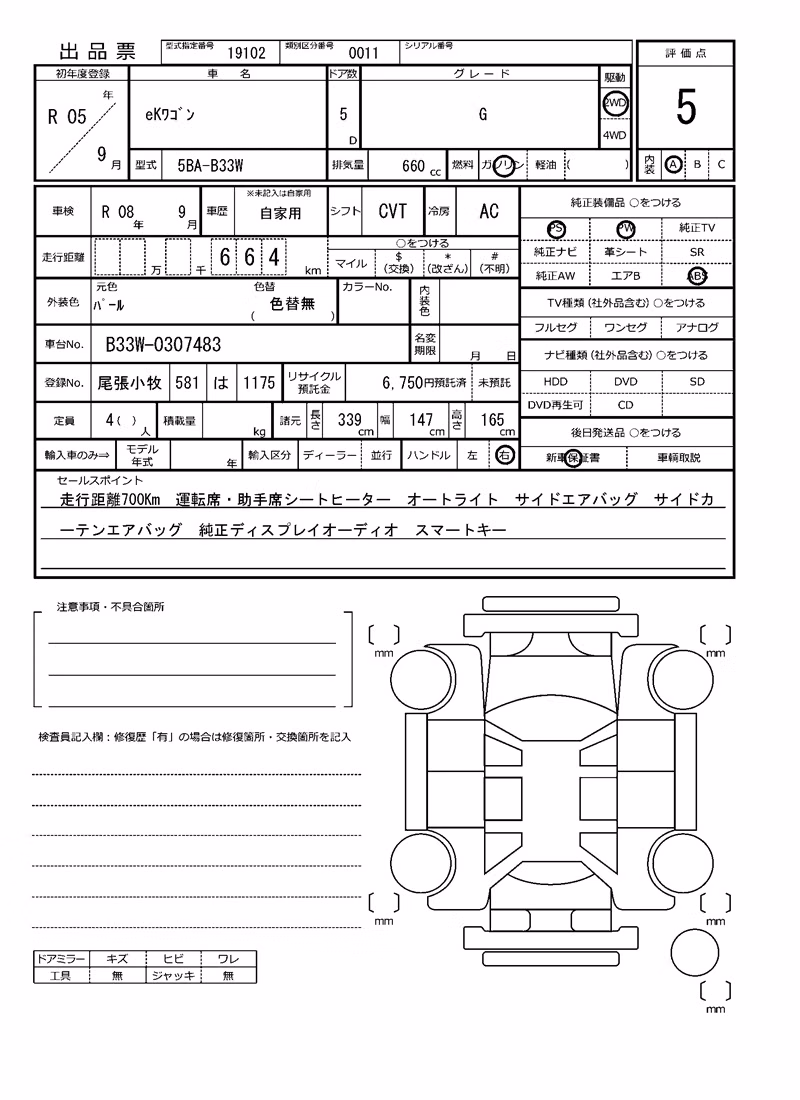 出品票 型式指定番号 19102 類別区分番号 0011 シリアル番号
評価点
5
内装 A B C
初年度登録 車名 ドア数 グレード 駆動
R 05 年 9 月 eKワゴン 5 D G 2WD
4WD
型式 5BA-B33W 排気量 660 cc 燃料 ガソリン 軽油 ( )
車検 R 08 年 9 月 車歴 ※未記入は自家用 自家用 シフト CVT 冷房 AC
走行距離 万 千 6 6 4 km ○をつける
マイル $(交換) *(改ざん) #(不明)
外装色 元色 パール 色替 ( 色替無 ) カラーNo. 内装色
車台No. B33W-0307483 名変期限 月 日
登録No. 尾張小牧 581 は 1175 リサイクル預託金 6,750円預託済 未預託
定員 4 ( ) 人 積載量 kg 諸元 長さ 339 cm 幅 147 cm 高さ 165 cm
輸入車のみ⇒ モデル年式 年 輸入区分 ディーラー 並行 ハンドル 左 右
純正装備品 ○をつける
PS PW 純正TV
純正ナビ 革シート SR
純正AW エアB ABS
TV種類(社外品含む) ○をつける
フルセグ ワンセグ アナログ
ナビ種類(社外品含む) ○をつける
HDD DVD SD
DVD再生可 CD
後日発送品 ○をつける
新車保証書 車輌取説
セールスポイント
走行距離700Km 運転席・助手席シートヒーター オートライト サイドエアバッグ サイドカ
ーテンエアバッグ 純正ディスプレイオーディオ スマートキー
注意事項・不具合箇所
検査員記入欄:修復歴「有」の場合は修復箇所・交換箇所を記入
ドアミラー キズ ヒビ ワレ
工具 無 ジャッキ 無
mm
mm
mm
mm
mm